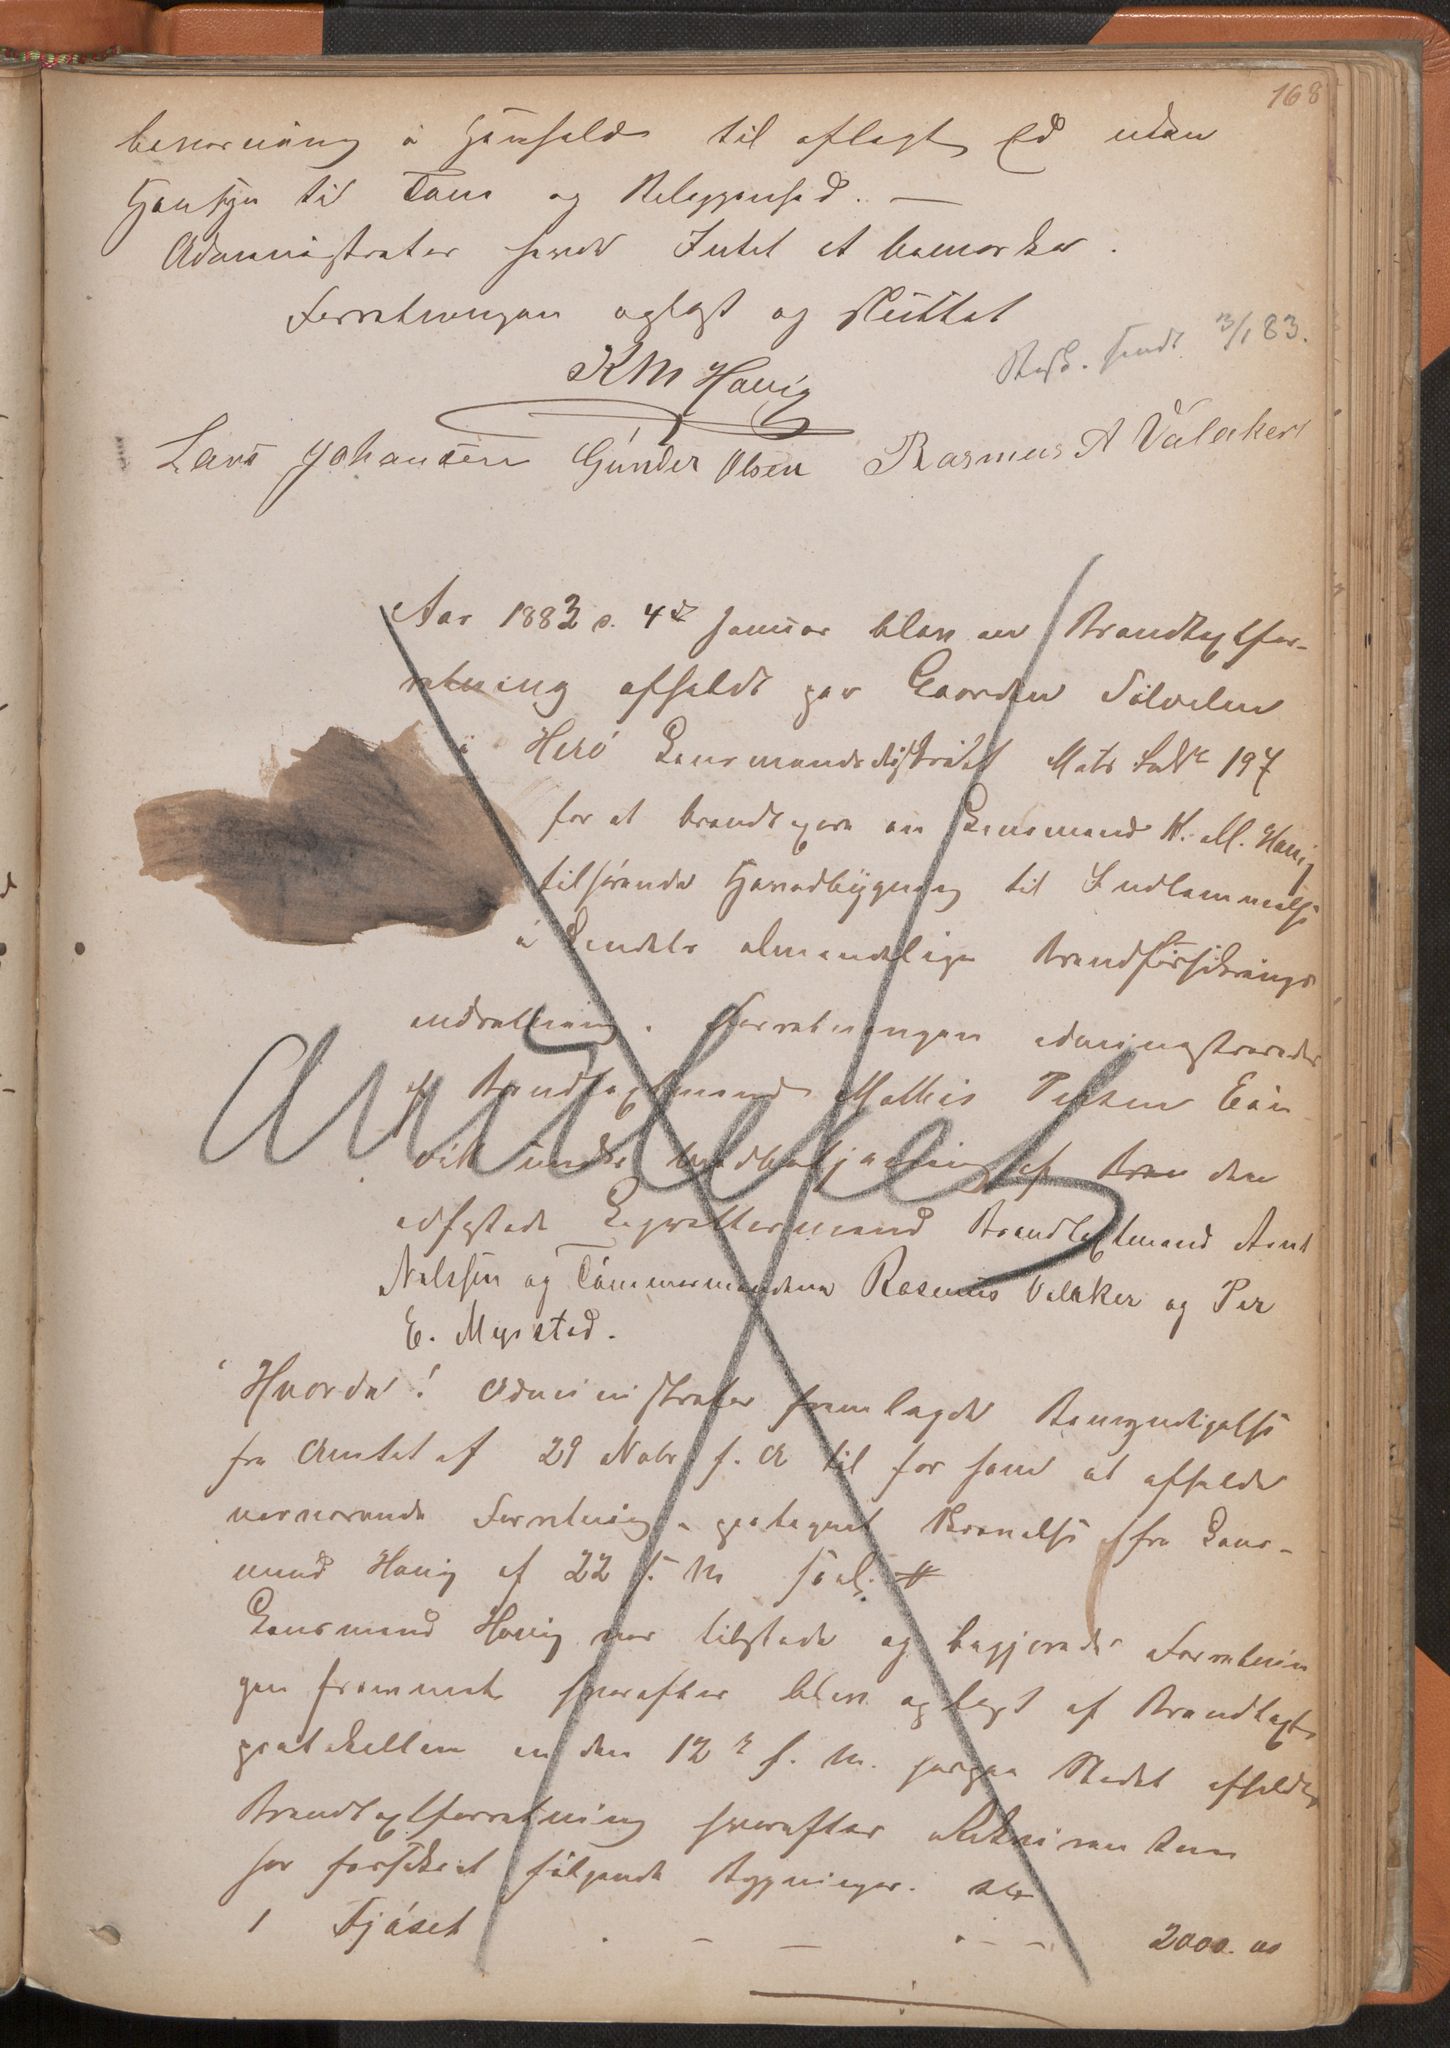 168
bevarning i Henhold til aflagt Ed uden
Hensyn til Tone og Beleggenhed. —
Administrator havde Intet at bemærke.
Forretningen oplæst og sluttet
Besk. sendt 3/1 83.
K M Havig
Lars Johansen Gunder Olsen Rasmus A Valaker
Aar 1883 d. 4de Januar blev en Brandtaxtfor-
retning afholdt paa Gaarden Sølvelen
i Herø Lensmandsdistrikt Matr Løbe 197
for at brandtaxere en Lensmand K. M. Havig
tilhørende Hovedbygning til Indlemmelse
i Landets almindelige Brandforsikrings
indretning. Forretningen administreredes
af Brandtaxtmand Mathis Petersen
vik under af Bran den
edfæstede Lagrettesmand Brandtaxtmand Arnt
Nilssen og Tømmermændene Rasmus Valaker og Per
E. Myrstad.
Hvorda! Administrator fremlagde Bemyndigelse
fra Amtet af 29 Novbr f. A til for ham at afholde
nærværende Forretning paategnet Begæring fra Lens-
mand Havig af 22 f. M
Lensmand Havig var tilstede og begjærede Forretnin
gen fremmet hvorefter blev oplæst af Brandtaxt
protokollen en den 12te f. M. paa Stedet afholdt
Brandtaxtforretning hvorefter Rekvirenten
har forsikret følgende Bygninger.
1 Fjøset . — — . — — 2000.00
Anulleres